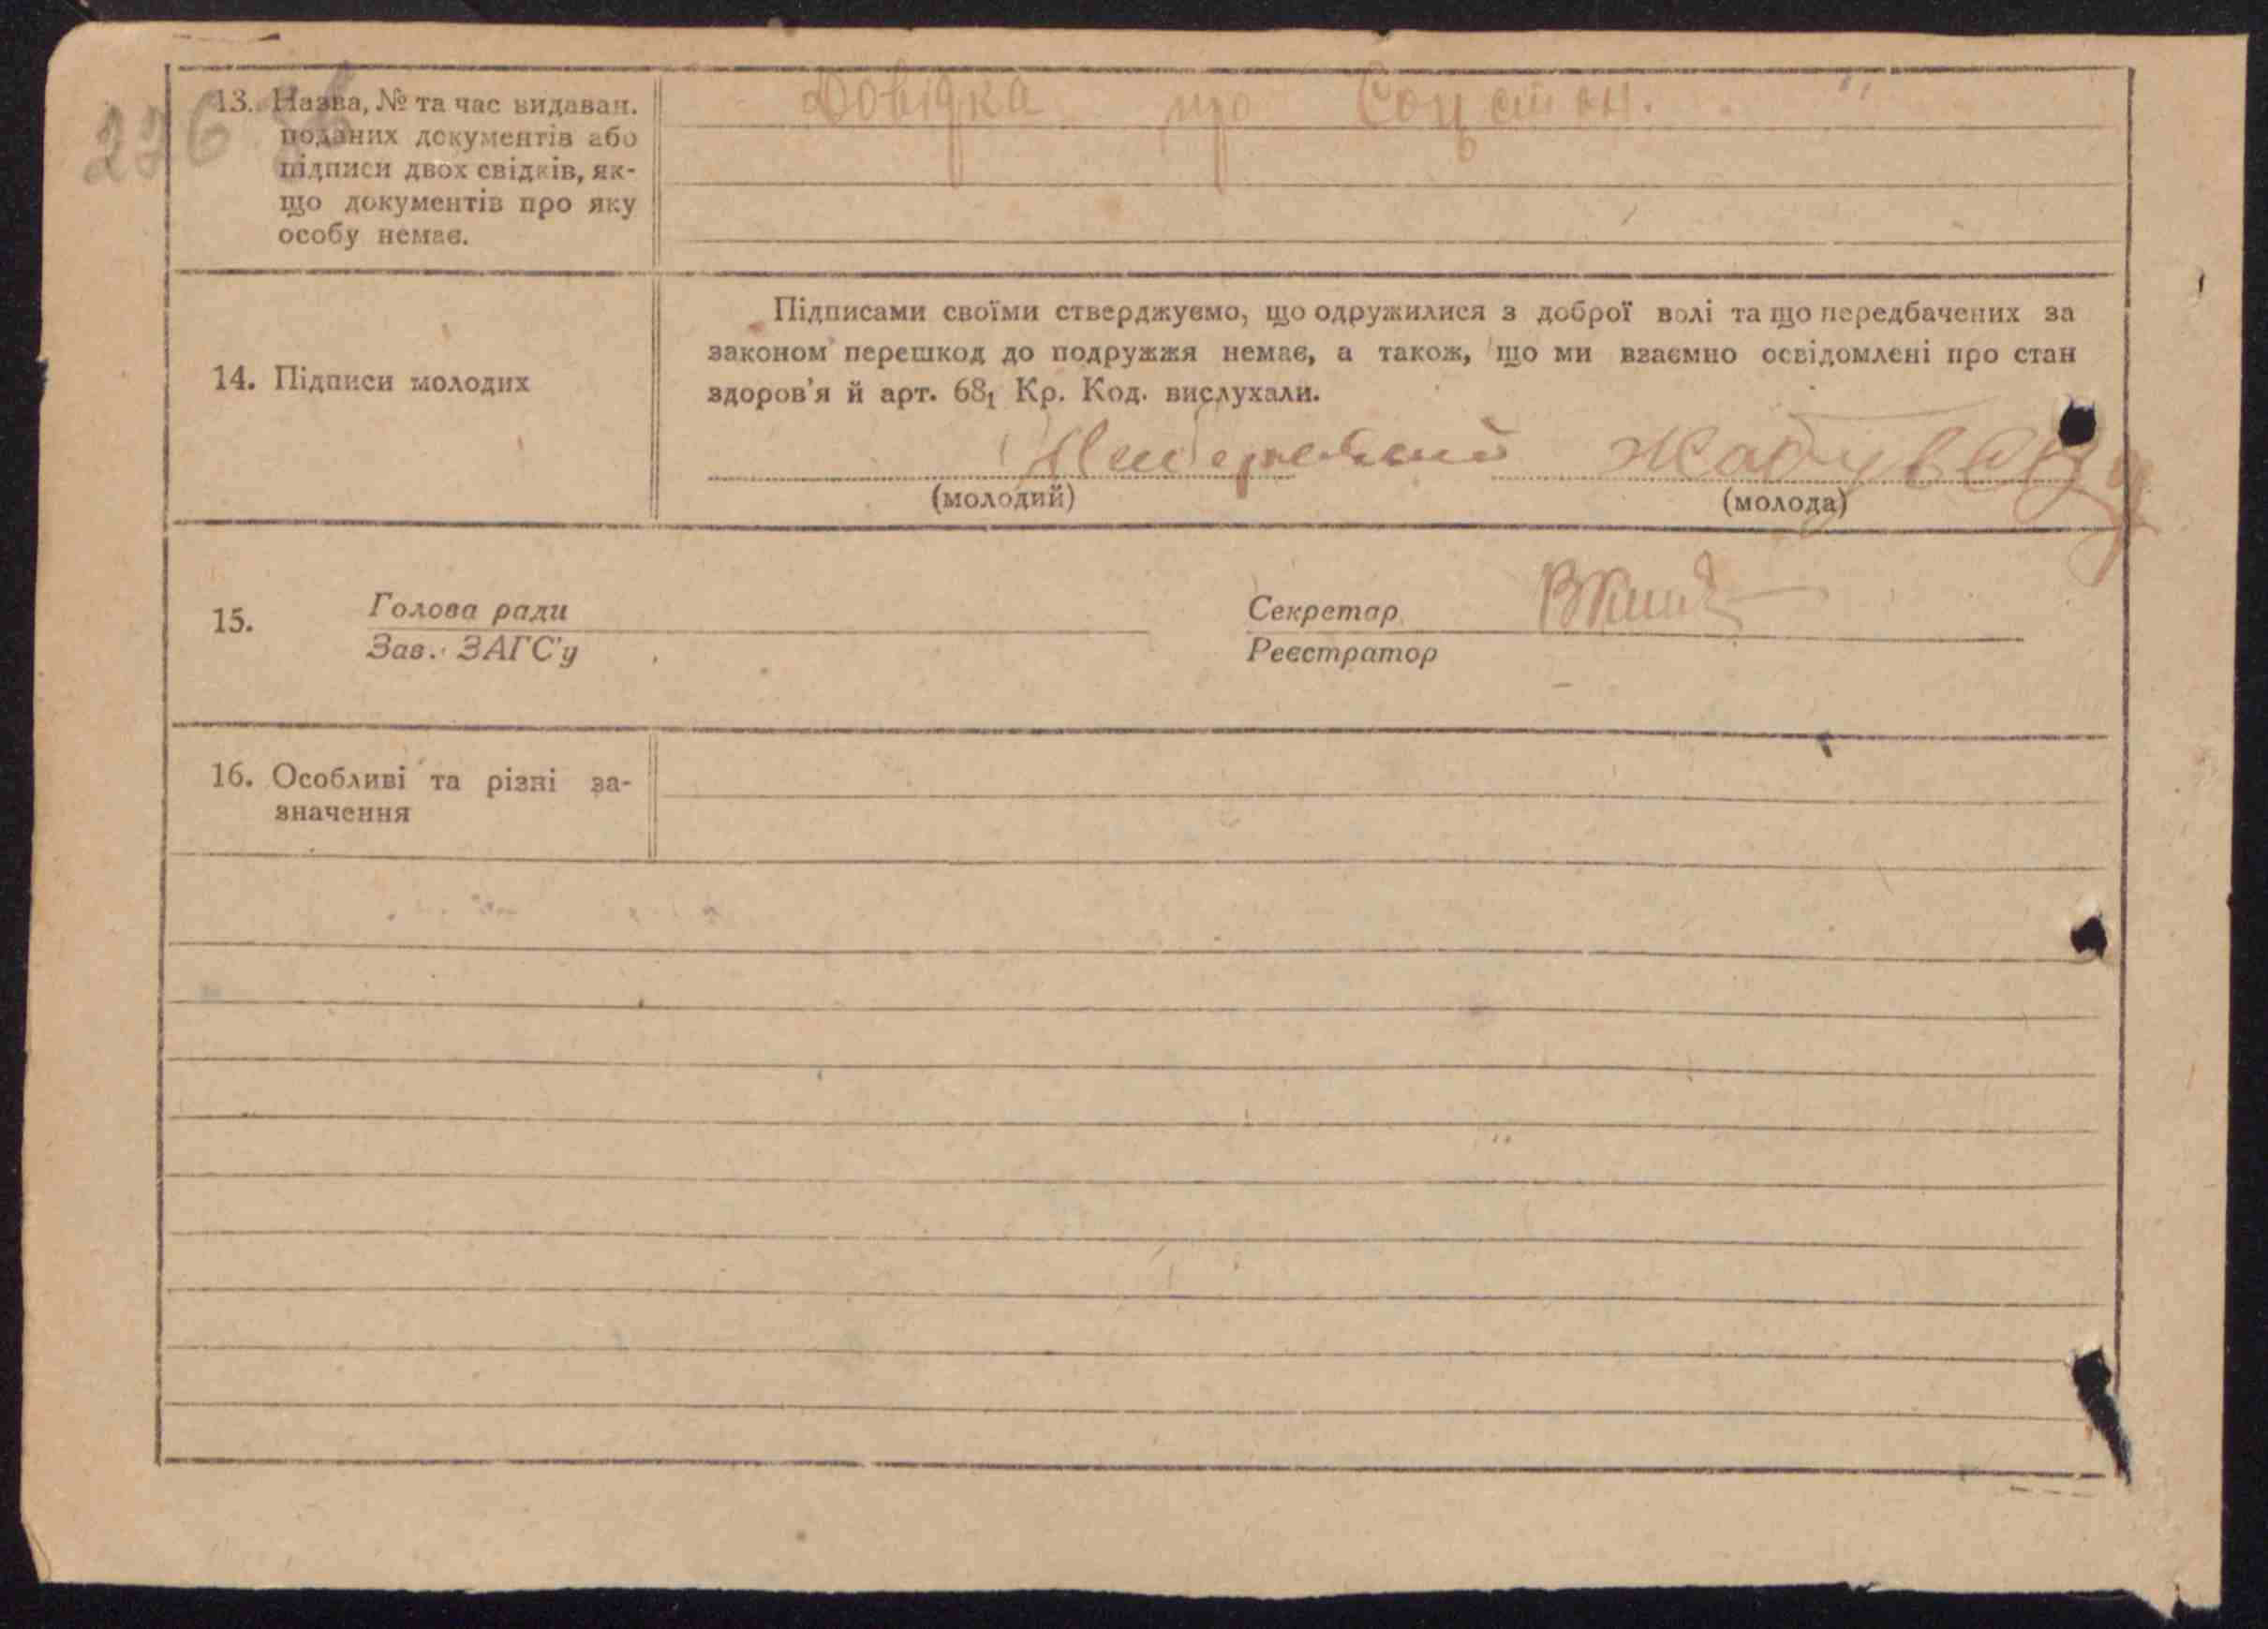 13. Назва, № та час видаван.
поданих документів або
підписи двох свідків, як-
що документів про яку
особу немає.
Довідка про Соц стан.
Підписами своїми стверджуємо, що одружилися з доброї волі та що передбачених за
законом перешкод до подружжя немає, а також, що ми взаємно освідомлені про стан
здоров'я й арт. 68₁ Кр. Код. вислухали.
14. Підписи молодих
(молодий) (молода)
15. Голова ради
Зав. ЗАГС'у
Секретар
Реєстратор
16. Особливі та різні за-
значення